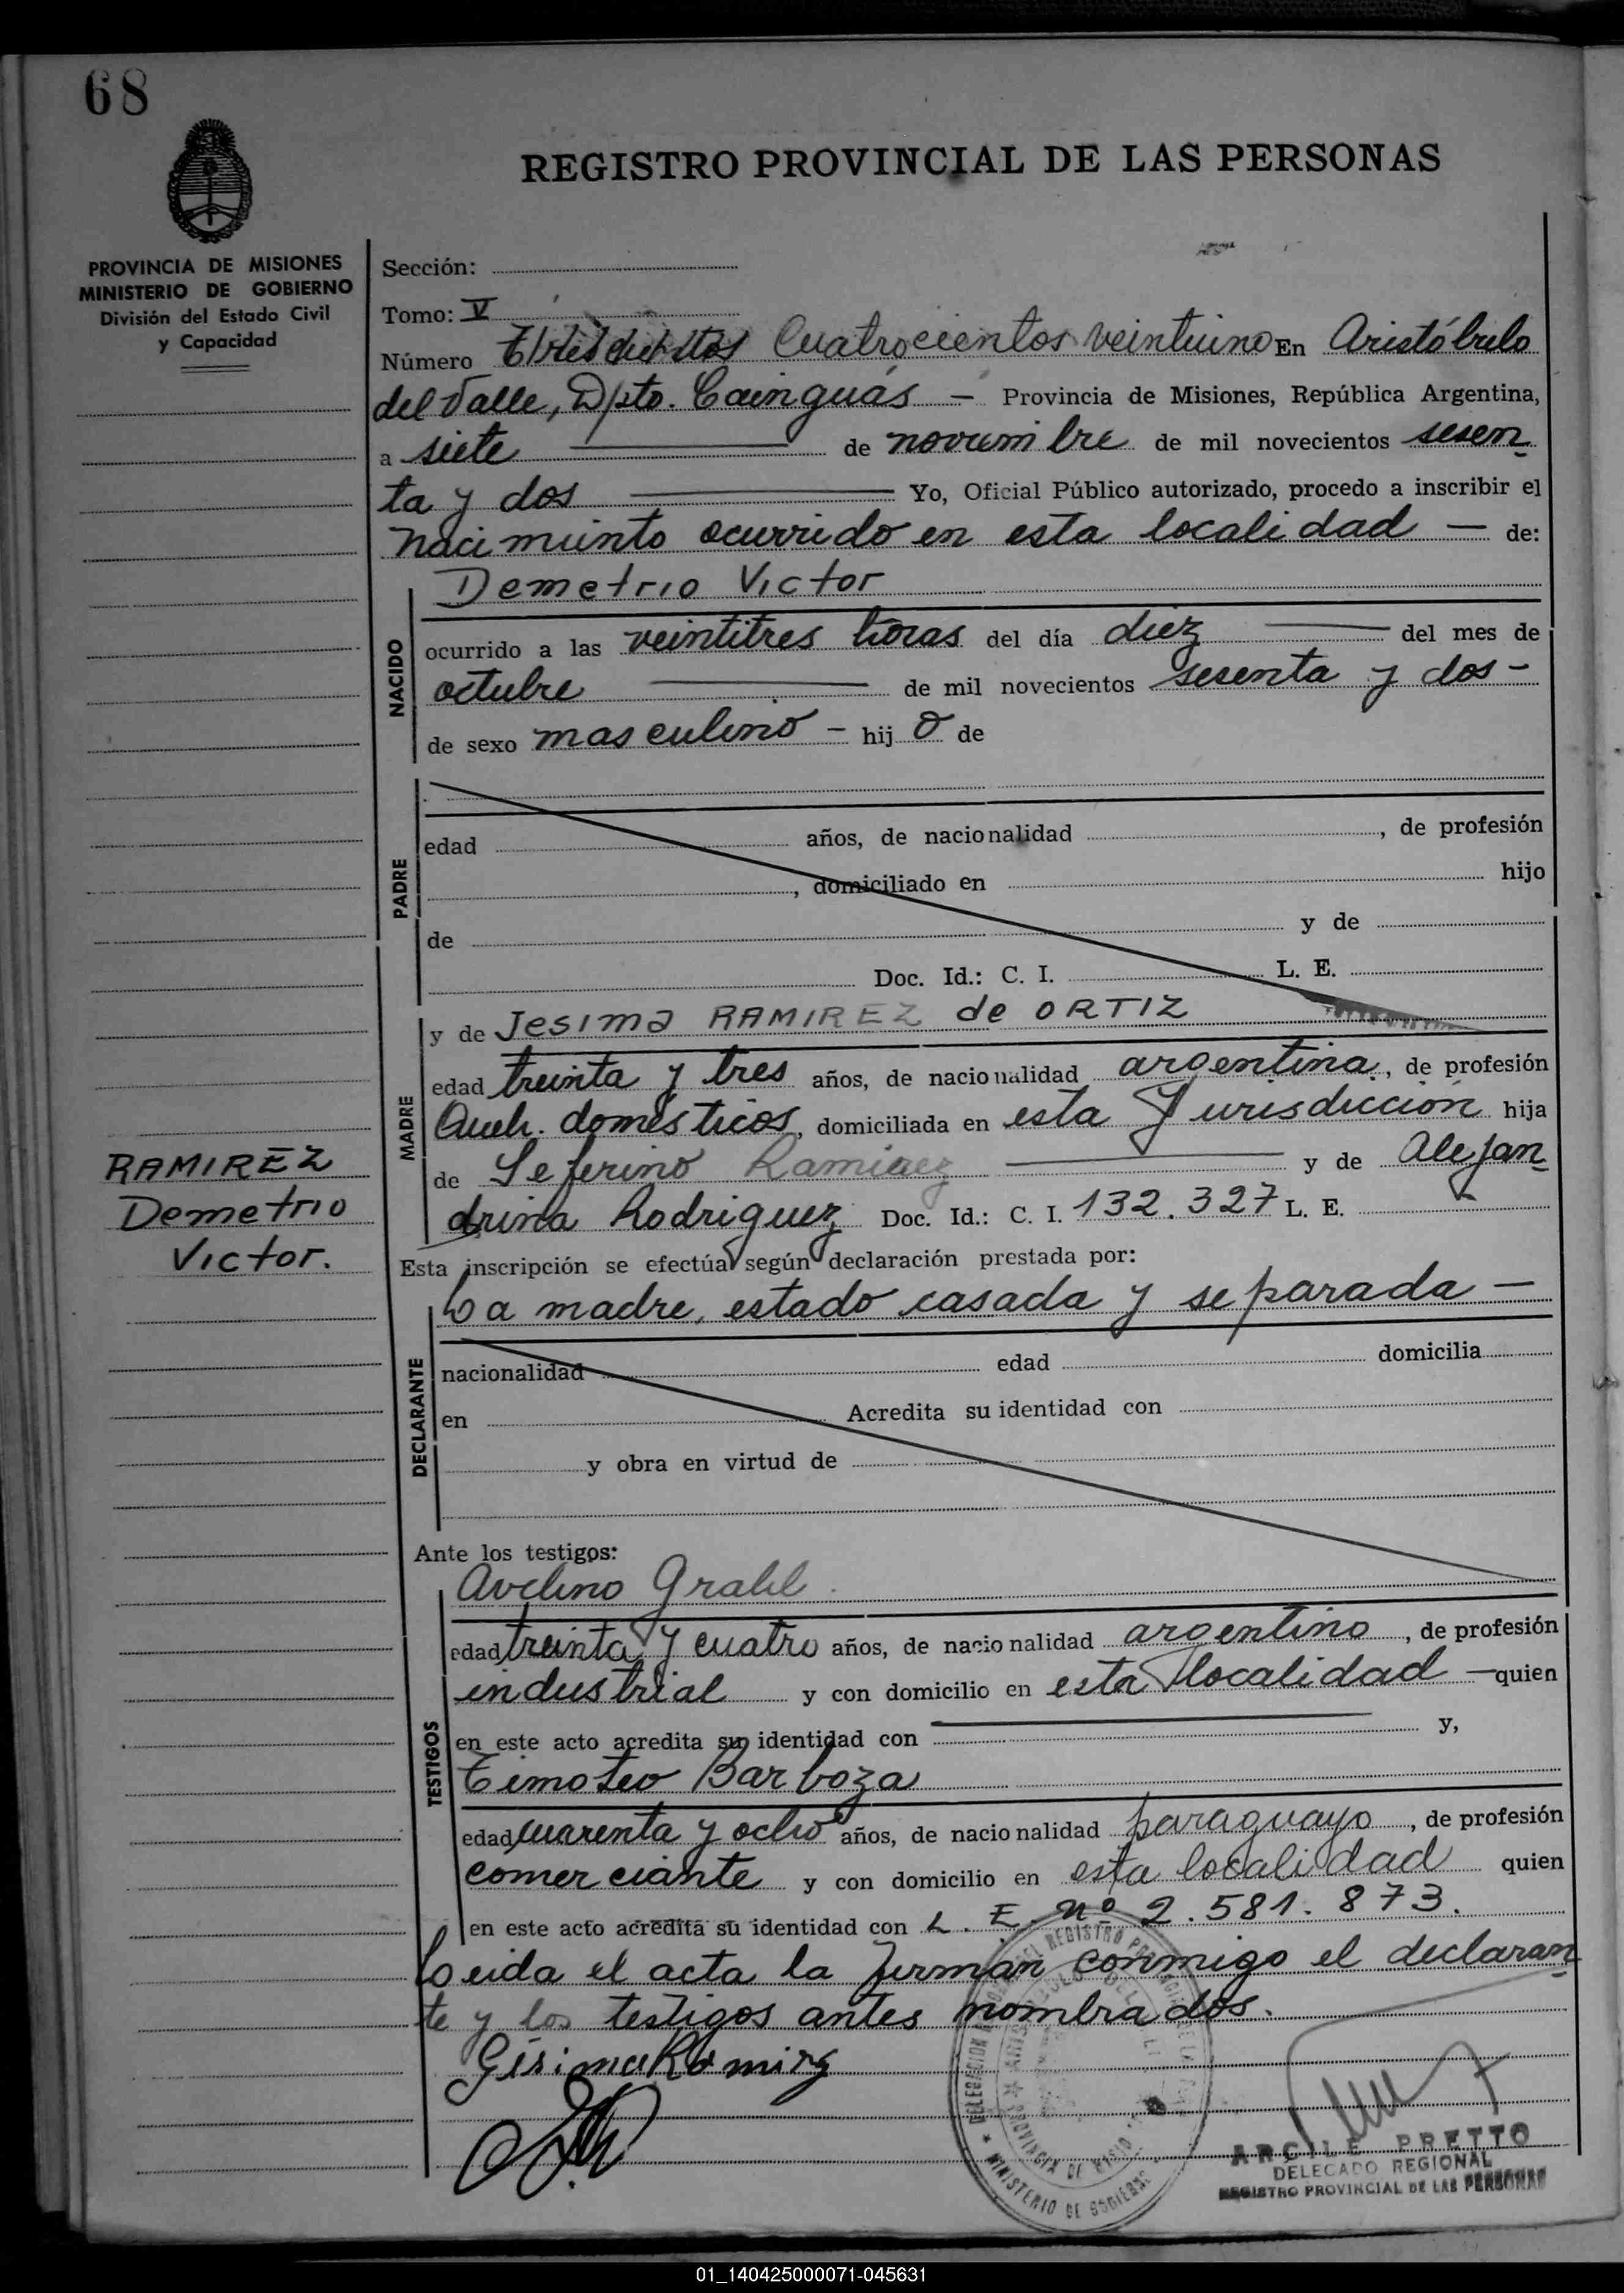 68
REGISTRO PROVINCIAL DE LAS PERSONAS
PROVINCIA DE MISIONES
MINISTERIO DE GOBIERNO
División del Estado Civil
y Capacidad
Sección:
Tomo: V
Número Cuatrocientos veintiuno En Aristóbulo
del Valle, Dpto. Cainguás — Provincia de Misiones, República Argentina,
a siete de noviembre de mil novecientos sesen
ta y dos Yo, Oficial Público autorizado, procedo a inscribir el
nacimiento ocurrido en esta localidad — de:
NACIDO
Demetrio Victor
ocurrido a las veintitres horas del día diez del mes de
octubre de mil novecientos sesenta y dos -
de sexo masculino - hij o de
PADRE
edad años, de nacionalidad , de profesión
, domiciliado en hijo
de y de
Doc. Id.: C. I. L. E.
MADRE
y de Jesima RAMIREZ de ORTIZ
edad treinta y tres años, de nacionalidad argentina, de profesión
Queh. domésticos, domiciliada en esta Jurisdicción hija
de Seferino Ramirez y de Alejan
drina Rodriguez Doc. Id.: C. I. 132.327 L. E.
RAMIREZ
Demetrio
Victor.
Esta inscripción se efectúa según declaración prestada por:
DECLARANTE
La madre, estado casada y separada —
nacionalidad edad domicilia
en Acredita su identidad con
y obra en virtud de
Ante los testigos:
TESTIGOS
Avelino Grahl
edad treinta y cuatro años, de nacionalidad argentino, de profesión
industrial y con domicilio en esta localidad — quien
en este acto acredita su identidad con y,
Timoteo Barboza
edad cuarenta y ocho años, de nacionalidad paraguayo, de profesión
comerciante y con domicilio en esta localidad quien
en este acto acredita su identidad con L. E. Nº 2.581.873.
Leida el acta la firman conmigo el declaran
te y los testigos antes nombrados.
Gesima Ramirez
ARCILE PRETTO
DELEGADO REGIONAL
REGISTRO PROVINCIAL DE LAS PERSONAS
MINISTERIO DE GOBIERNO
PROVINCIA DE
01_140425000071-045631